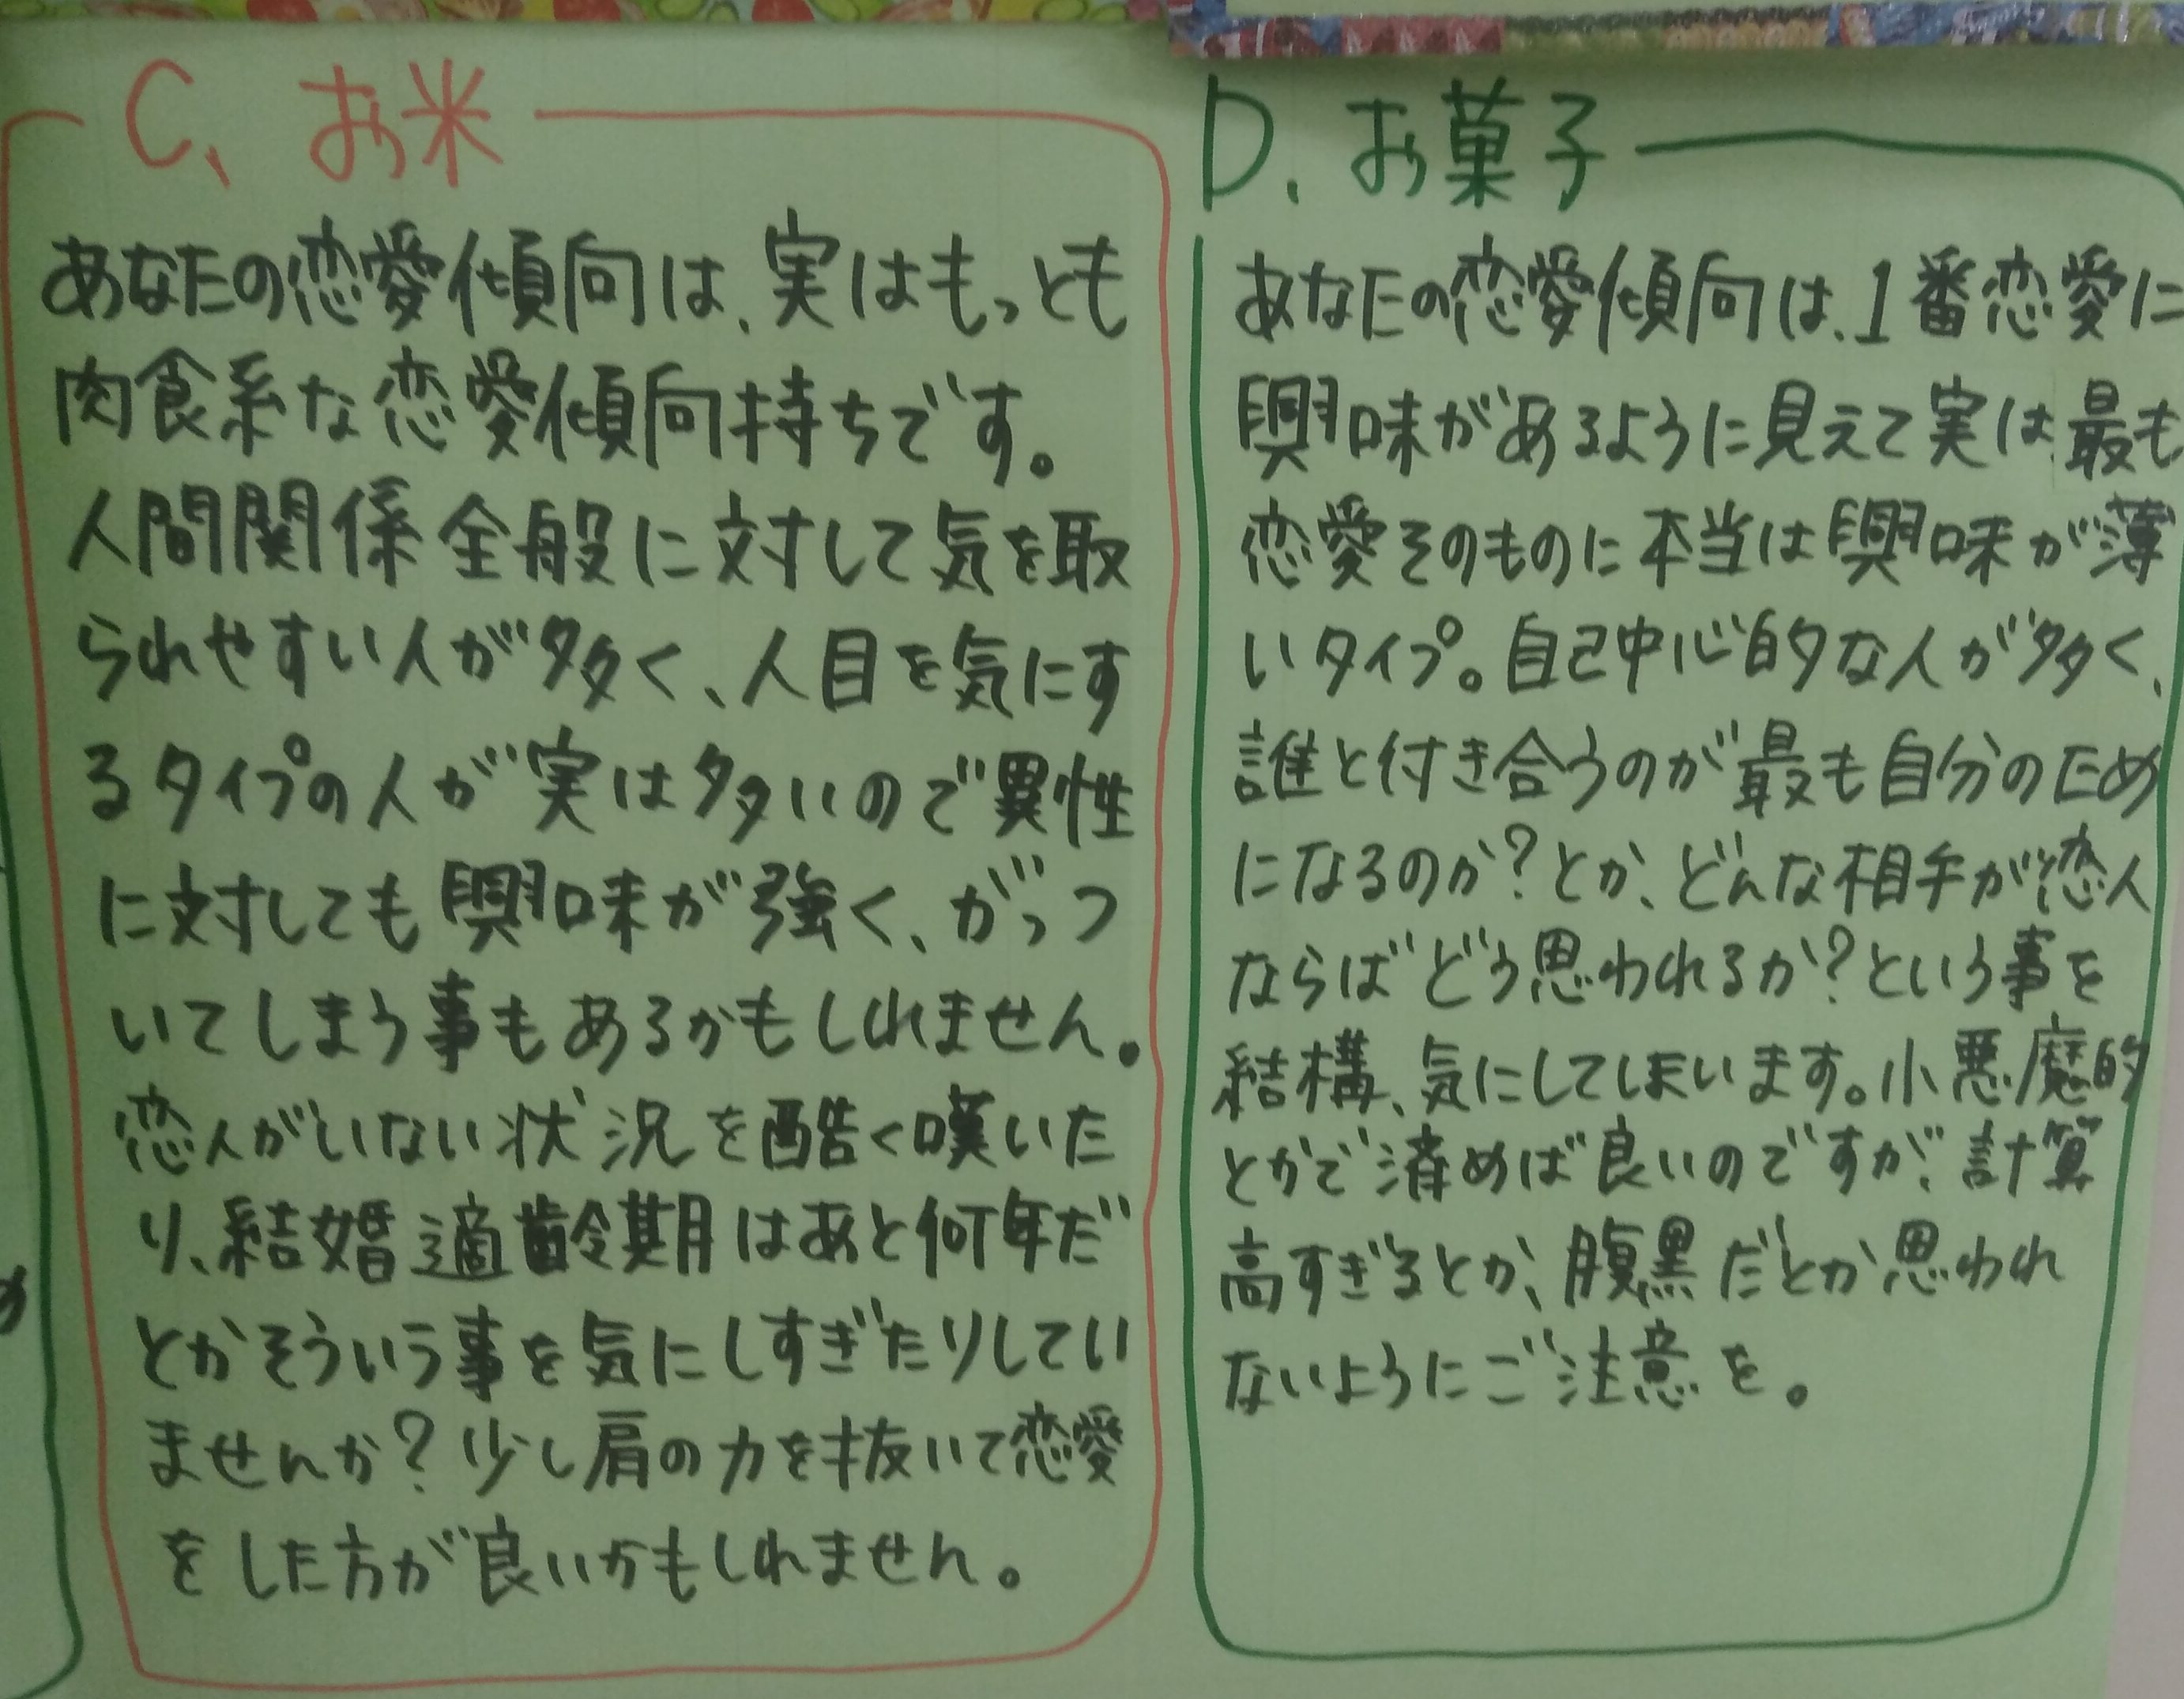 C、お米
あなたの恋愛傾向は、実はもっとも
肉食系な恋愛傾向持ちです。
人間関係全般に対して気を取
られやすい人が多く、人目を気にす
るタイプの人が実は多いので異性
に対しても興味が強く、がっつ
いてしまう事もあるかもしれません。
恋人がいない状況を酷く嘆いた
り、結婚適齢期はあと何年だ
とかそういう事を気にしすぎたりしてい
ませんか?少し肩の力を抜いて恋愛
をした方が良いかもしれません。
D、お菓子
あなたの恋愛傾向は、1番恋愛に
興味があるように見えて実は最も
恋愛そのものに本当は興味が薄
いタイプ。自己中心的な人が多く、
誰と付き合うのが最も自分のため
になるのか?とか、どんな相手が恋人
ならばどう思われるか?という事を
結構、気にしてしまいます。小悪魔的
とかで済めば良いのですが、計算
高すぎるとか、腹黒だとか思われ
ないようにご注意を。